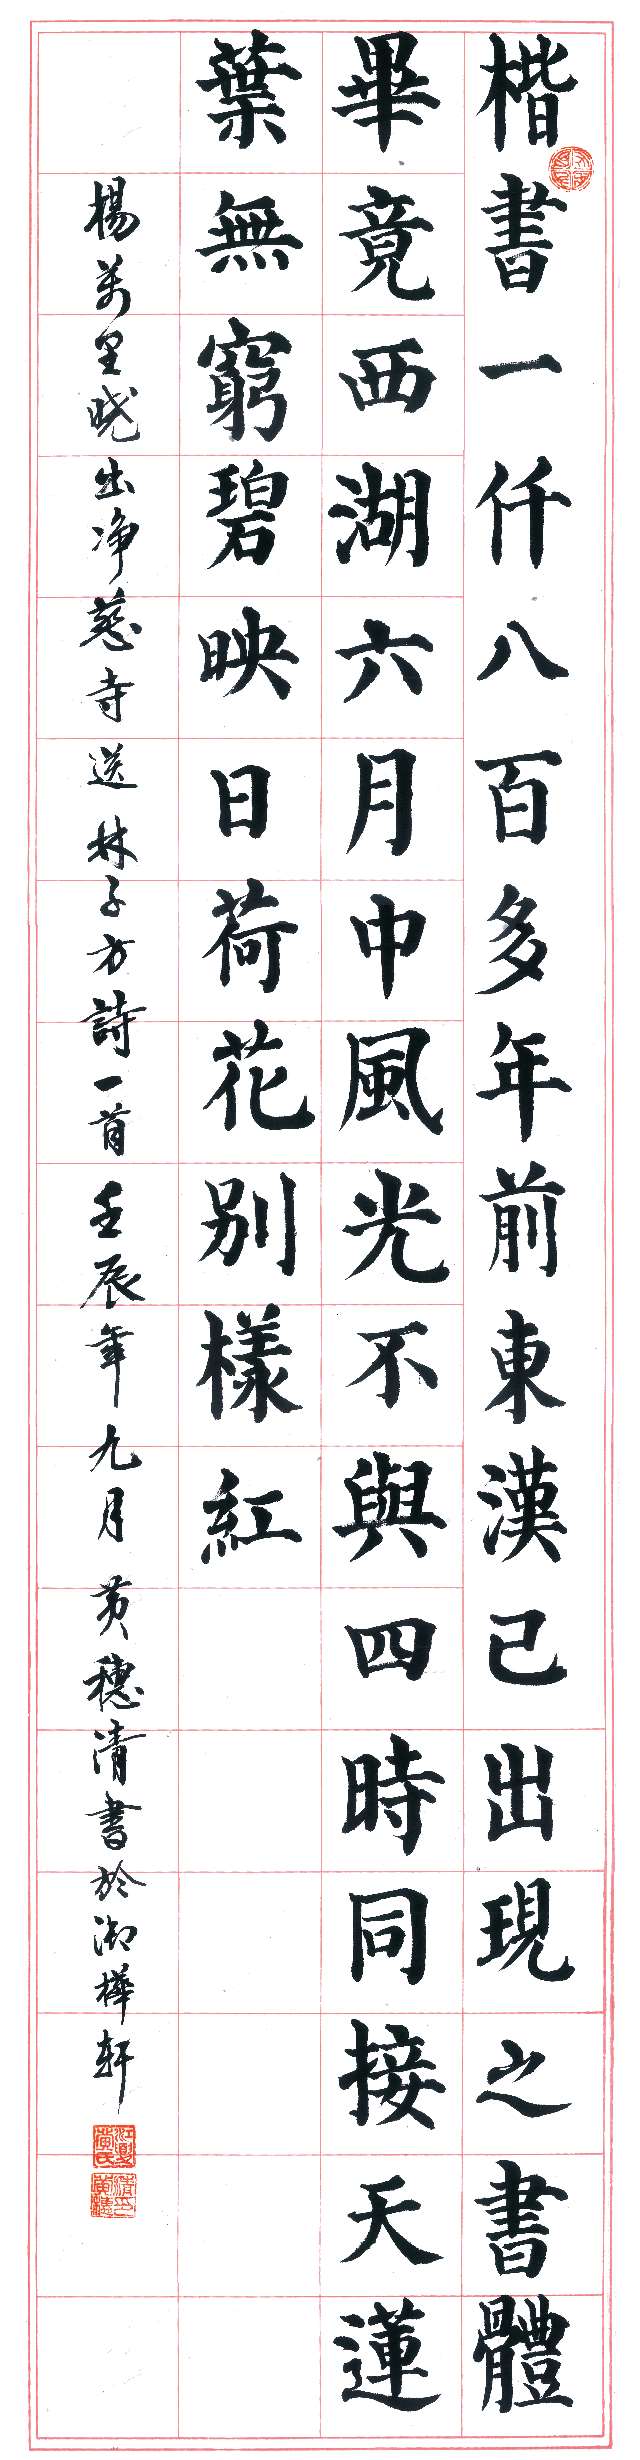 楷書一仟八百多年前東漢已出現之書體
畢竟西湖六月中風光不與四時同接天蓮
葉無窮碧映日荷花別樣紅
楊萬里曉出净慈寺送林子方詩一首壬辰年九月黃穗清書於湖樺軒
江夏黃氏